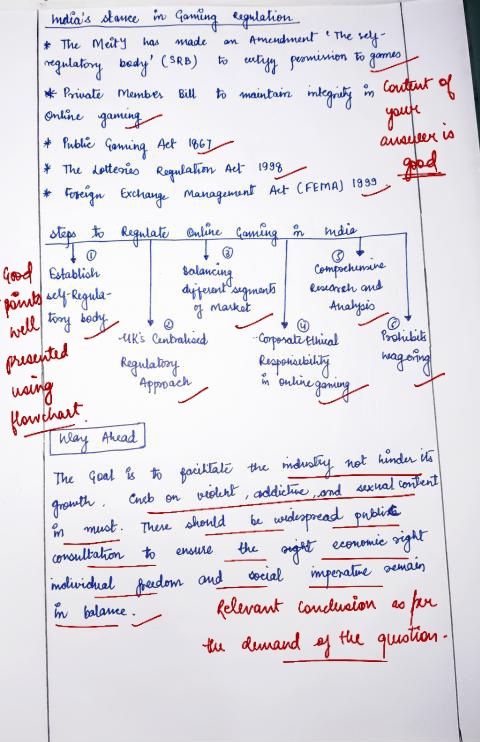 India's stance in Gaming Regulation
* The MeitY has made an Amendment 'The self-
regulatory body' (SRB) to certify permission to games
* Private Member Bill to maintain integrity in
Online gaming
* Public Gaming Act 1867
* The Lotteries Regulation Act 1998
* Foreign Exchange Management Act (FEMA) 1999
Content of
your
answer is
good
steps to Regulate Online Gaming in India
① Establish
self-Regula-
tory body
③ Balancing
different segments
of Market
⑤ Comprehensive
Research and
Analysis
② -UK's Centralised
Regulatory
Approach
④ -Corporate Ethical
Responsibility
in online gaming
⑥ Prohibits
wagering
Good
points
well
presented
using
flowchart.
Way Ahead
The Goal is to facilitate the industry not hinder its
growth. Curb on violent, addictive, and sexual content
in must. There should be widespread public
consultation to ensure the economic right
individual freedom and social imperative remain
in balance.
Relevant conclusion as per
the demand of the question.